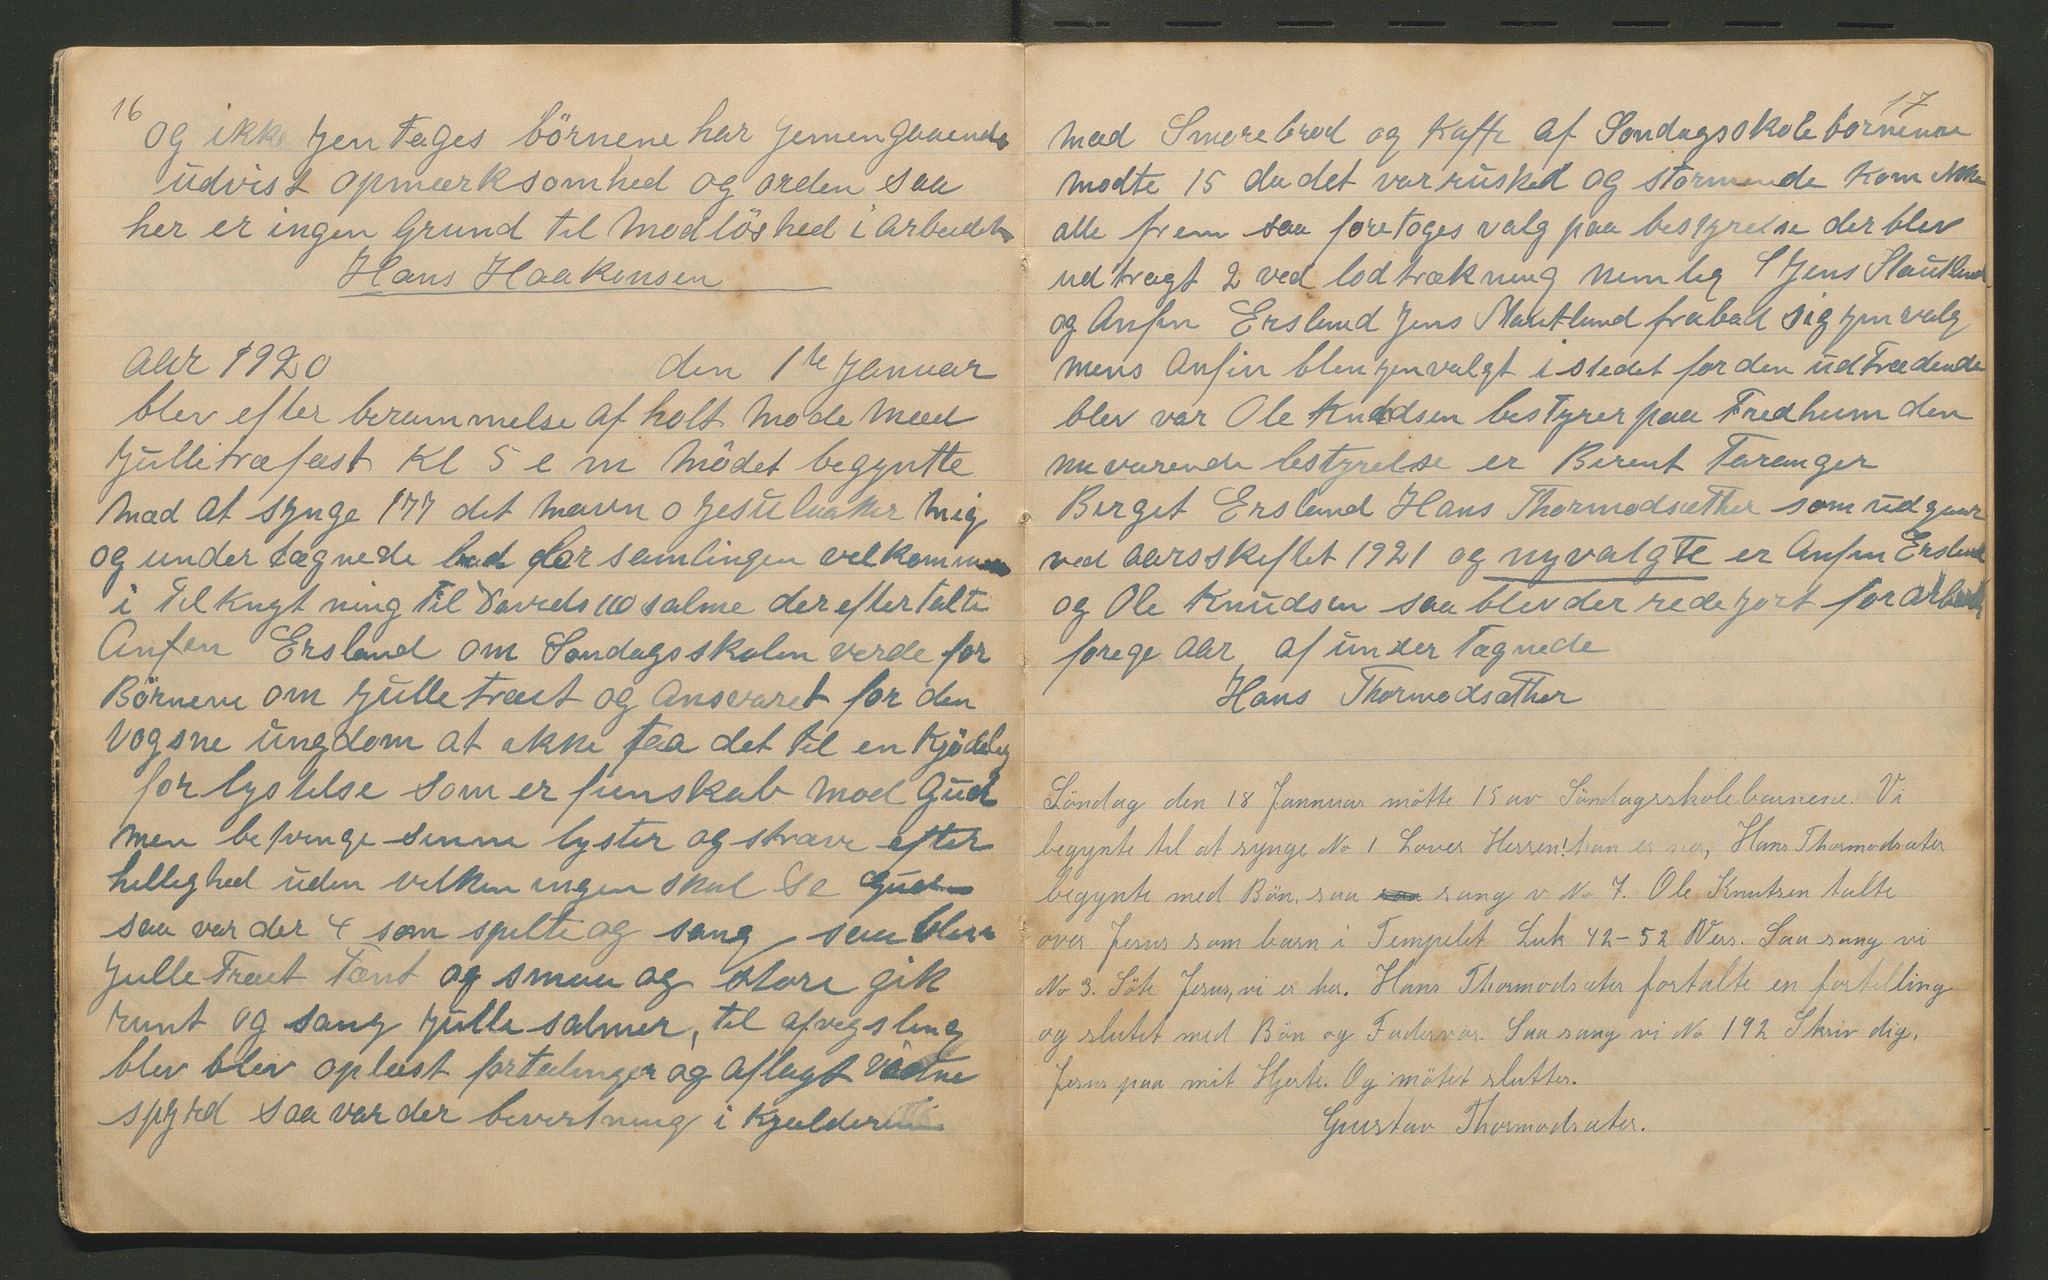 16
og ikke jen tages börnene har jemengaaende
udvist opmærksomhed og orden saa
her er ingen Grund til Modlöshed i arbeidet
Hans Haakonsen
aar 1920 den 1te Januar
blev efter berammelse af holt Mode Mæd
Julletræfæst Kl 5 e m Mödet begyntte
Mæd at synge 177 det navn o Jesu luakker Mig
og under tægnede bad for samlingen velkommen
i Tilknytning til Davids 110 salme der efter talte
Anfen Ersland om Sondagsskolen verde for
Börnene om Julletræet og Ansvaret for den
Vogsne ungdom at ikke taa det til en Kjödelig
forlystelse som er fienskab mod Gud
men betvinge sinne lyster og stræve efter
hellighed uden velken ingen skal se Gud
saa var der 4 som spilte og sang saa blev
Julle Træet Tænt og smaa og store gik
runt og sang Julle salmer, til afvegsling
blev blev oplæst fortælinger og aflagt Vidne
spyrd saa var der bevertning i Kjelderen
17
Mæd Smörebröd og Kaffe af Söndagsskolebornene
modte 15 da det var rusked og stormende kom ikke
alle frem saa foretoges valg paa bestyrelse der blev
ud tragt 2 ved lodtrækning nemlig Jens Flautland
og Anfin Ersland Jens Flautland frabad sig jenvalg
mens Anfin blev jenvalgt i stedet for den udtrædende
blev var Ole Knudsen bestyrer paa Fredheim den
nuværende bestyrelse er Berent Taranger
Birget Ersland Hans Thormodsæther som udgaar
ved aarsskeftet 1921 og nyvalgte er Anfin Ersland
og Ole Knudsen saa blev der rede jort for arbeidet
forege aar af under tægnede
Hans Thormodsæther
Söndag den 18 Jannuar mötte 15 av Söndagsskolebarnene. Vi
begynte til at synge No 1 Lover Herren! han er nær, Hans Thormodsæter
begynte med Bön, saa saa sang v No 7. Ole Knutsen talte
over Jesus som barn i Tempelet Luk 42-52 Vers. Saa sang vi
No 3. Söte Jesus, vi er her. Hans Thormodsæter fortalte en fortelling
og slutet med Bön og Fadervor. Saa sang vi No 192 Skriv dig,
Jesus paa mit Hjerte. Og mötet slutter.
Gustav Thormodsæter.